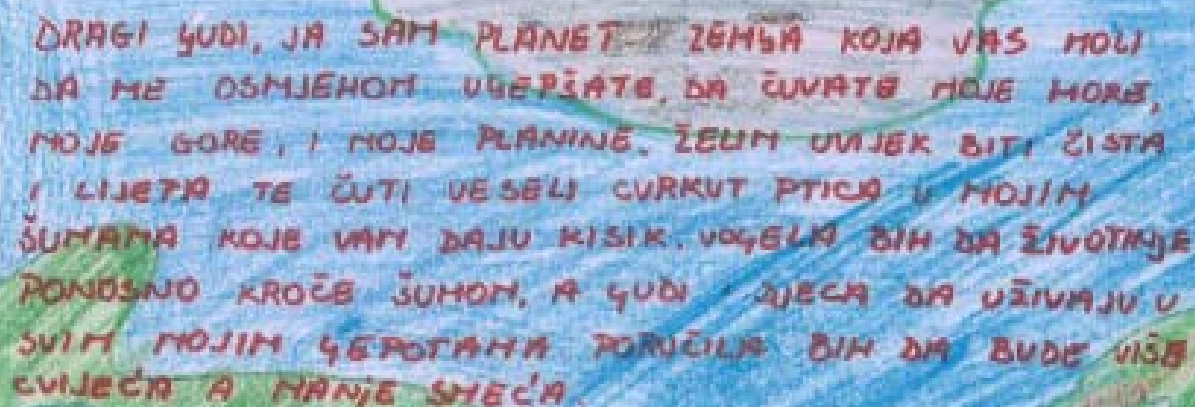 DRAGI LJUDI, JA SAM PLANET ZEMLJA KOJA VAS MOLI
DA ME OSMJEHOM ULJEPŠATE, DA ČUVATE MOJE MORE,
MOJE GORE, I MOJE PLANINE. ŽELIM UVIJEK BITI ČISTA
I LIJEPA TE ČUTI VESELI CVRKUT PTICA U MOJIM
ŠUMAMA KOJE VAM DAJU KISIK. VOLJELA BIH DA ŽIVOTINJE
PONOSNO KROČE ŠUMOM, A LJUDI I DJECA DA UŽIVAJU U
SVIM MOJIM LJEPOTAMA PORUČILA BIH DA BUDE VIŠE
CVIJEĆA A MANJE SMEĆA.